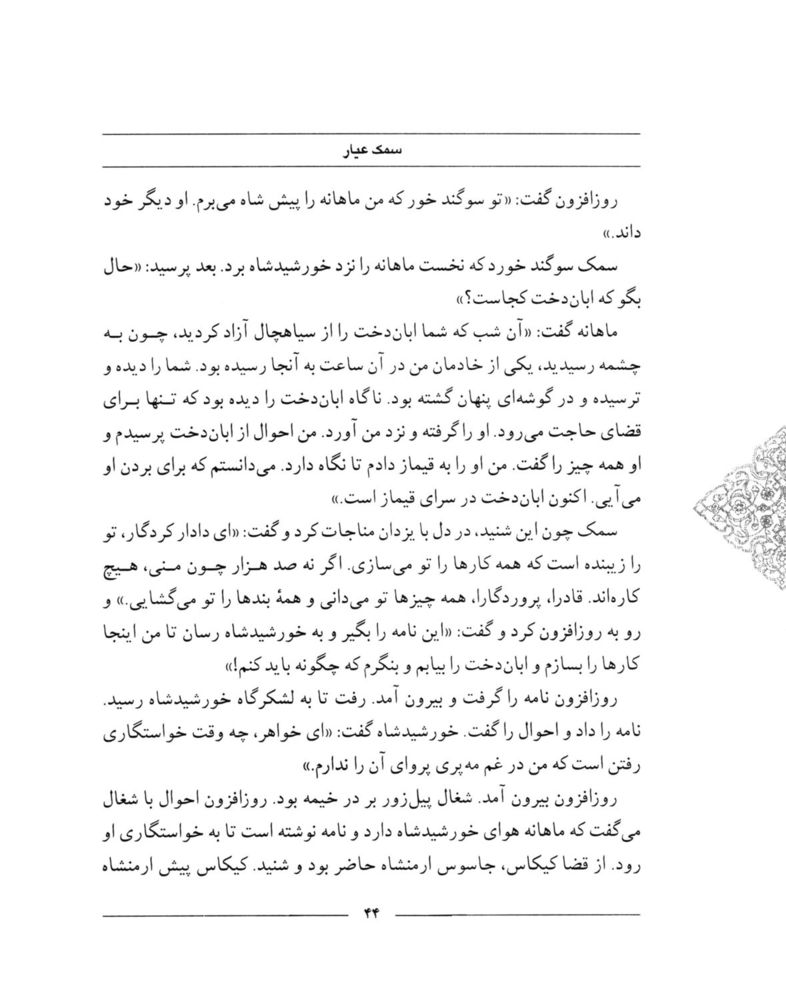 سمک عیار
روزافزون گفت: «تو سوگند خور که من ماهانه را پیش شاه می‌برم. او دیگر خود
داند.»
سمک سوگند خورد که نخست ماهانه را نزد خورشیدشاه برد. بعد پرسید: «حال
بگو که ابان‌دخت کجاست؟»
ماهانه گفت: «آن شب که شما ابان‌دخت را از سیاهچال آزاد کردید، چون به
چشمه رسیدید، یکی از خادمان من در آن ساعت به آنجا رسیده بود. شما را دیده و
ترسیده و در گوشه‌ای پنهان گشته بود. ناگاه ابان‌دخت را دیده بود که تنها برای
قضای حاجت می‌رود. او را گرفته و نزد من آورد. من احوال از ابان‌دخت پرسیدم و
او همه چیز را گفت. من او را به قیماز دادم تا نگاه دارد. می‌دانستم که برای بردن او
می‌آیی. اکنون ابان‌دخت در سرای قیماز است.»
سمک چون این شنید، در دل با یزدان مناجات کرد و گفت: «ای دادار کردگار، تو
را زیبنده است که همه کارها را تو می‌سازی. اگر نه صد هزار چون منی، هیچ
کاره‌اند. قادرا، پروردگارا، همه چیزها تو می‌دانی و همهٔ بندها را تو می‌گشایی.» و
رو به روزافزون کرد و گفت: «این نامه را بگیر و به خورشیدشاه رسان تا من اینجا
کارها را بسازم و ابان‌دخت را بیابم و بنگرم که چگونه باید کنم!»
روزافزون نامه را گرفت و بیرون آمد. رفت تا به لشکرگاه خورشیدشاه رسید.
نامه را داد و احوال را گفت. خورشیدشاه گفت: «ای خواهر، چه وقت خواستگاری
رفتن است که من در غم مه‌پری پروای آن را ندارم.»
روزافزون بیرون آمد. شغال پیل‌زور بر در خیمه بود. روزافزون احوال با شغال
می‌گفت که ماهانه هوای خورشیدشاه دارد و نامه نوشته است تا به خواستگاری او
رود. از قضا کیکاس، جاسوس ارمنشاه حاضر بود و شنید. کیکاس پیش ارمنشاه
۴۴